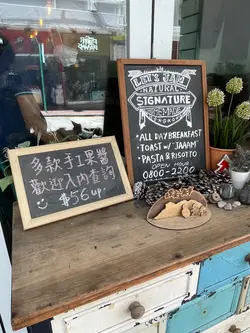 LET'S JAM
NATURAL
SIGNATURE
HOMEMADE
• ALL DAY BREAKFAST
• TOAST W/ "JAAAM"
• PASTA & RISOTTO
OPEN HOUR
0800-2200
多款手工果醬
歡迎入內查詢
$56 up